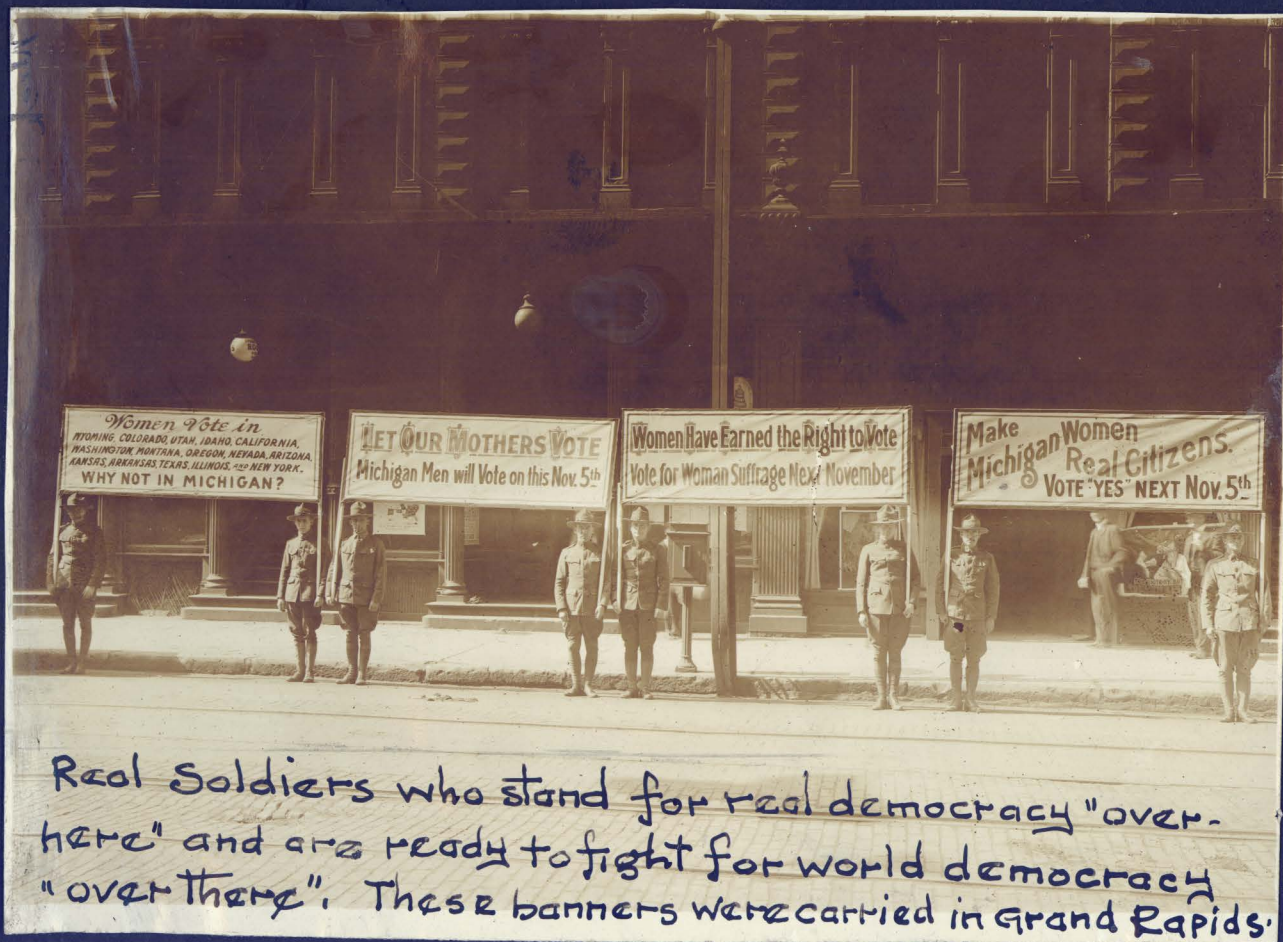 Women Vote in
WYOMING, COLORADO, UTAH, IDAHO, CALIFORNIA,
WASHINGTON, MONTANA, OREGON, NEVADA, ARIZONA,
KANSAS, ARKANSAS, TEXAS, ILLINOIS, AND NEW YORK.
WHY NOT IN MICHIGAN?
LET OUR MOTHERS VOTE
Michigan Men will Vote on this Nov. 5th
Women Have Earned the Right to Vote
Vote for Woman Suffrage Next November
Make
Michigan Women
Real Citizens.
VOTE "YES" NEXT Nov. 5th
Real Soldiers who stand for real democracy "over-
here" and are ready to fight for world democracy
"over there". These banners were carried in Grand Rapids.